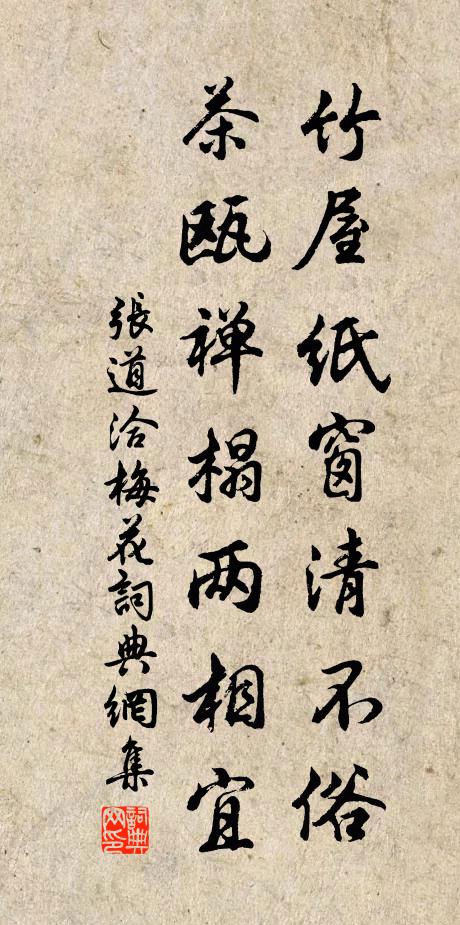 竹屋纸窗清不俗
茶瓯禅榻两相宜
張道洽梅花詞典網集
詞典网印